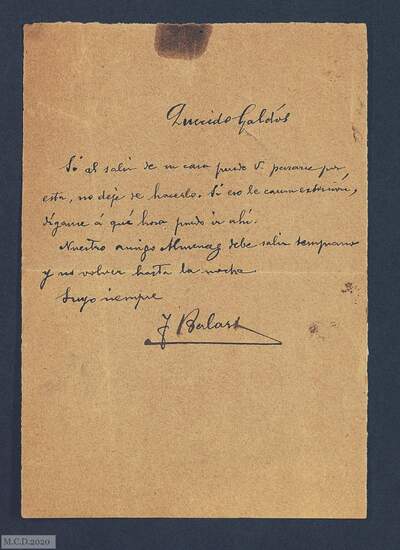 Querido Galdós
Si al salir de su casa puede V. pasarse por
esta, no deje de hacerlo. Si eso le causa extorsión,
dígame á qué hora puedo ir ahí.
Nuestro amigo Almenas debe salir temprano
y no volver hasta la noche
Suyo siempre
F Balart
M.C.D.2020